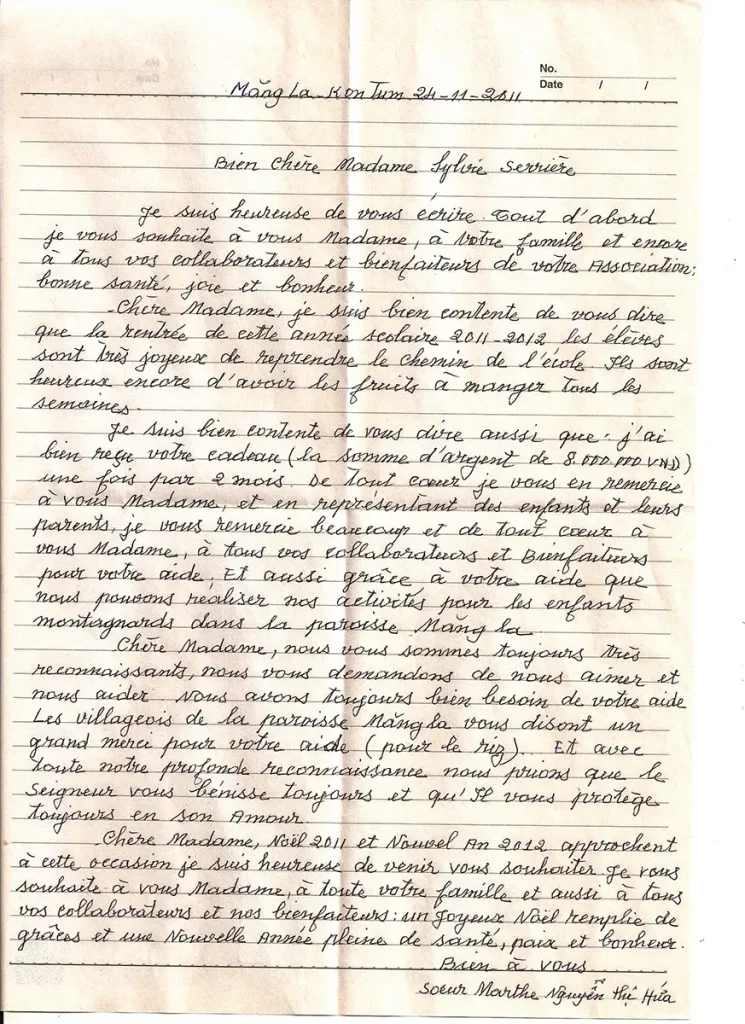 No.
Date / /
Măng La - Kon Tum 24-11-2011
Bien Chère Madame Sylvie Serrière
Je suis heureuse de vous écrire. Tout d'abord
je vous souhaite à vous Madame, à votre famille et encore
à tous vos collaborateurs et bienfaiteurs de votre Association:
bonne santé, joie et bonheur.
Chère Madame, je suis bien contente de vous dire
que la rentrée de cette année scolaire 2011-2012 les élèves
sont très joyeux de reprendre le chemin de l'école. Ils sont
heureux encore d'avoir les fruits à manger tous les
semaines.
Je suis bien contente de vous dire aussi que: j'ai
bien reçu votre cadeau (la somme d'argent de 8.000.000 VND)
une fois par 2 mois. De tout cœur je vous en remercie
à vous Madame, et en représentant des enfants et leurs
parents, je vous remercie beaucoup et de tout cœur à
vous Madame, à tous vos collaborateurs et Bienfaiteurs
pour votre aide, Et aussi grâce à votre aide que
nous pouvons réaliser nos activités pour les enfants
montagnards dans la paroisse Măng la.
Chère Madame, nous vous sommes toujours très
reconnaissants, nous vous demandons de nous aimer et
nous aider. Nous avons toujours bien besoin de votre aide
Les villageois de la paroisse Măng la vous disont un
grand merci pour votre aide (pour le riz). Et avec
toute notre profonde reconnaissance nous prions que le
Seigneur vous bénisse toujours et qu'Il vous protège
toujours en son Amour.
Chère Madame, Noël 2011 et Nouvel An 2012 approchent
à cette occasion je suis heureuse de venir vous souhaiter Je vous
souhaite à vous Madame, à toute votre famille et aussi à tous
vos collaborateurs et nos bienfaiteurs: un Joyeux Noël remplie de
grâces et une Nouvelle Année pleine de santé, paix et bonheur.
Bien à vous
Soeur Marthe Nguyễn Thị Hứa